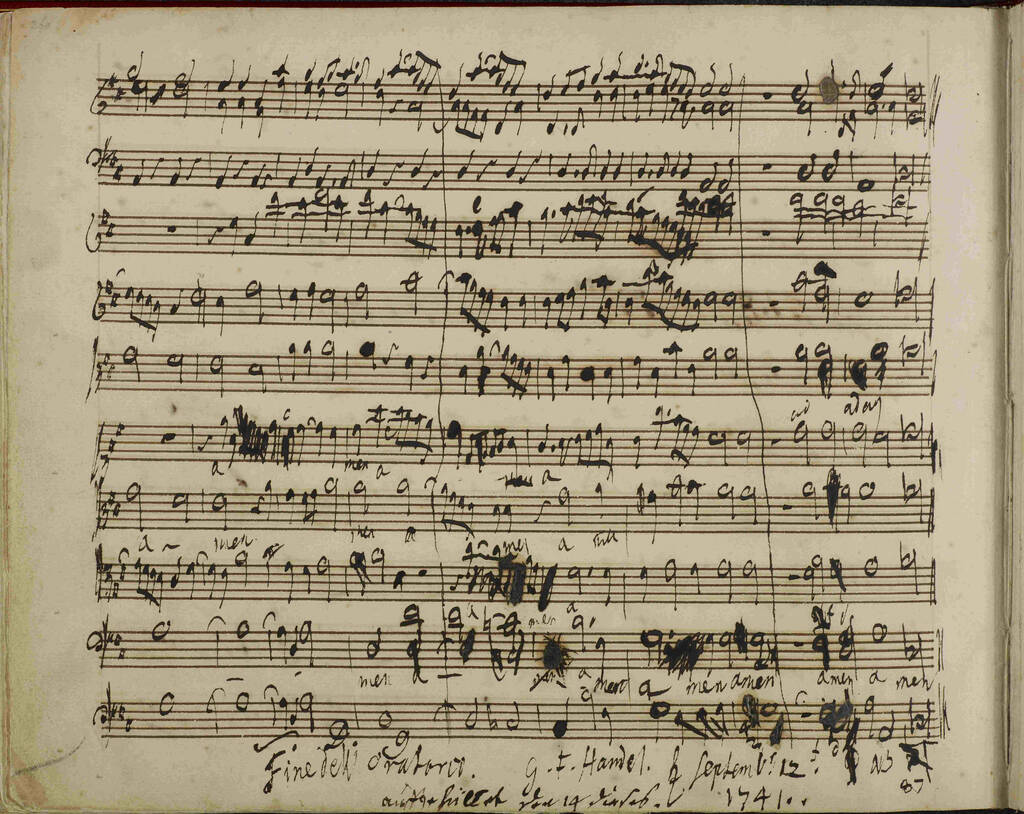 ad adag
a men a men a
a - men men a men a men
a men
men a - men a men a men amen amen a men
Fine dell Oratorio. G. F. Handel. ♄ Septemb. 12. 1741.
ausgefüllet den 14 dieses.
87